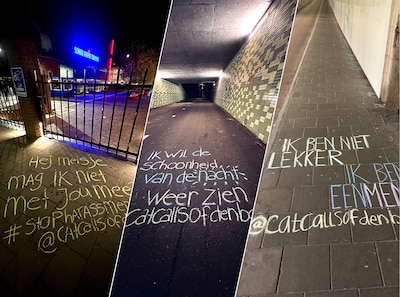 Hej meisje
mag ik niet
met jou mee
#stopharassmen
@catcallsof
IK Wil de
schoonheid
van de nacht
weer zien
catcallsofdenbo
IK BEN NIET
LEKKER
IK BEN
EEN MEN
@catcallsofdenb